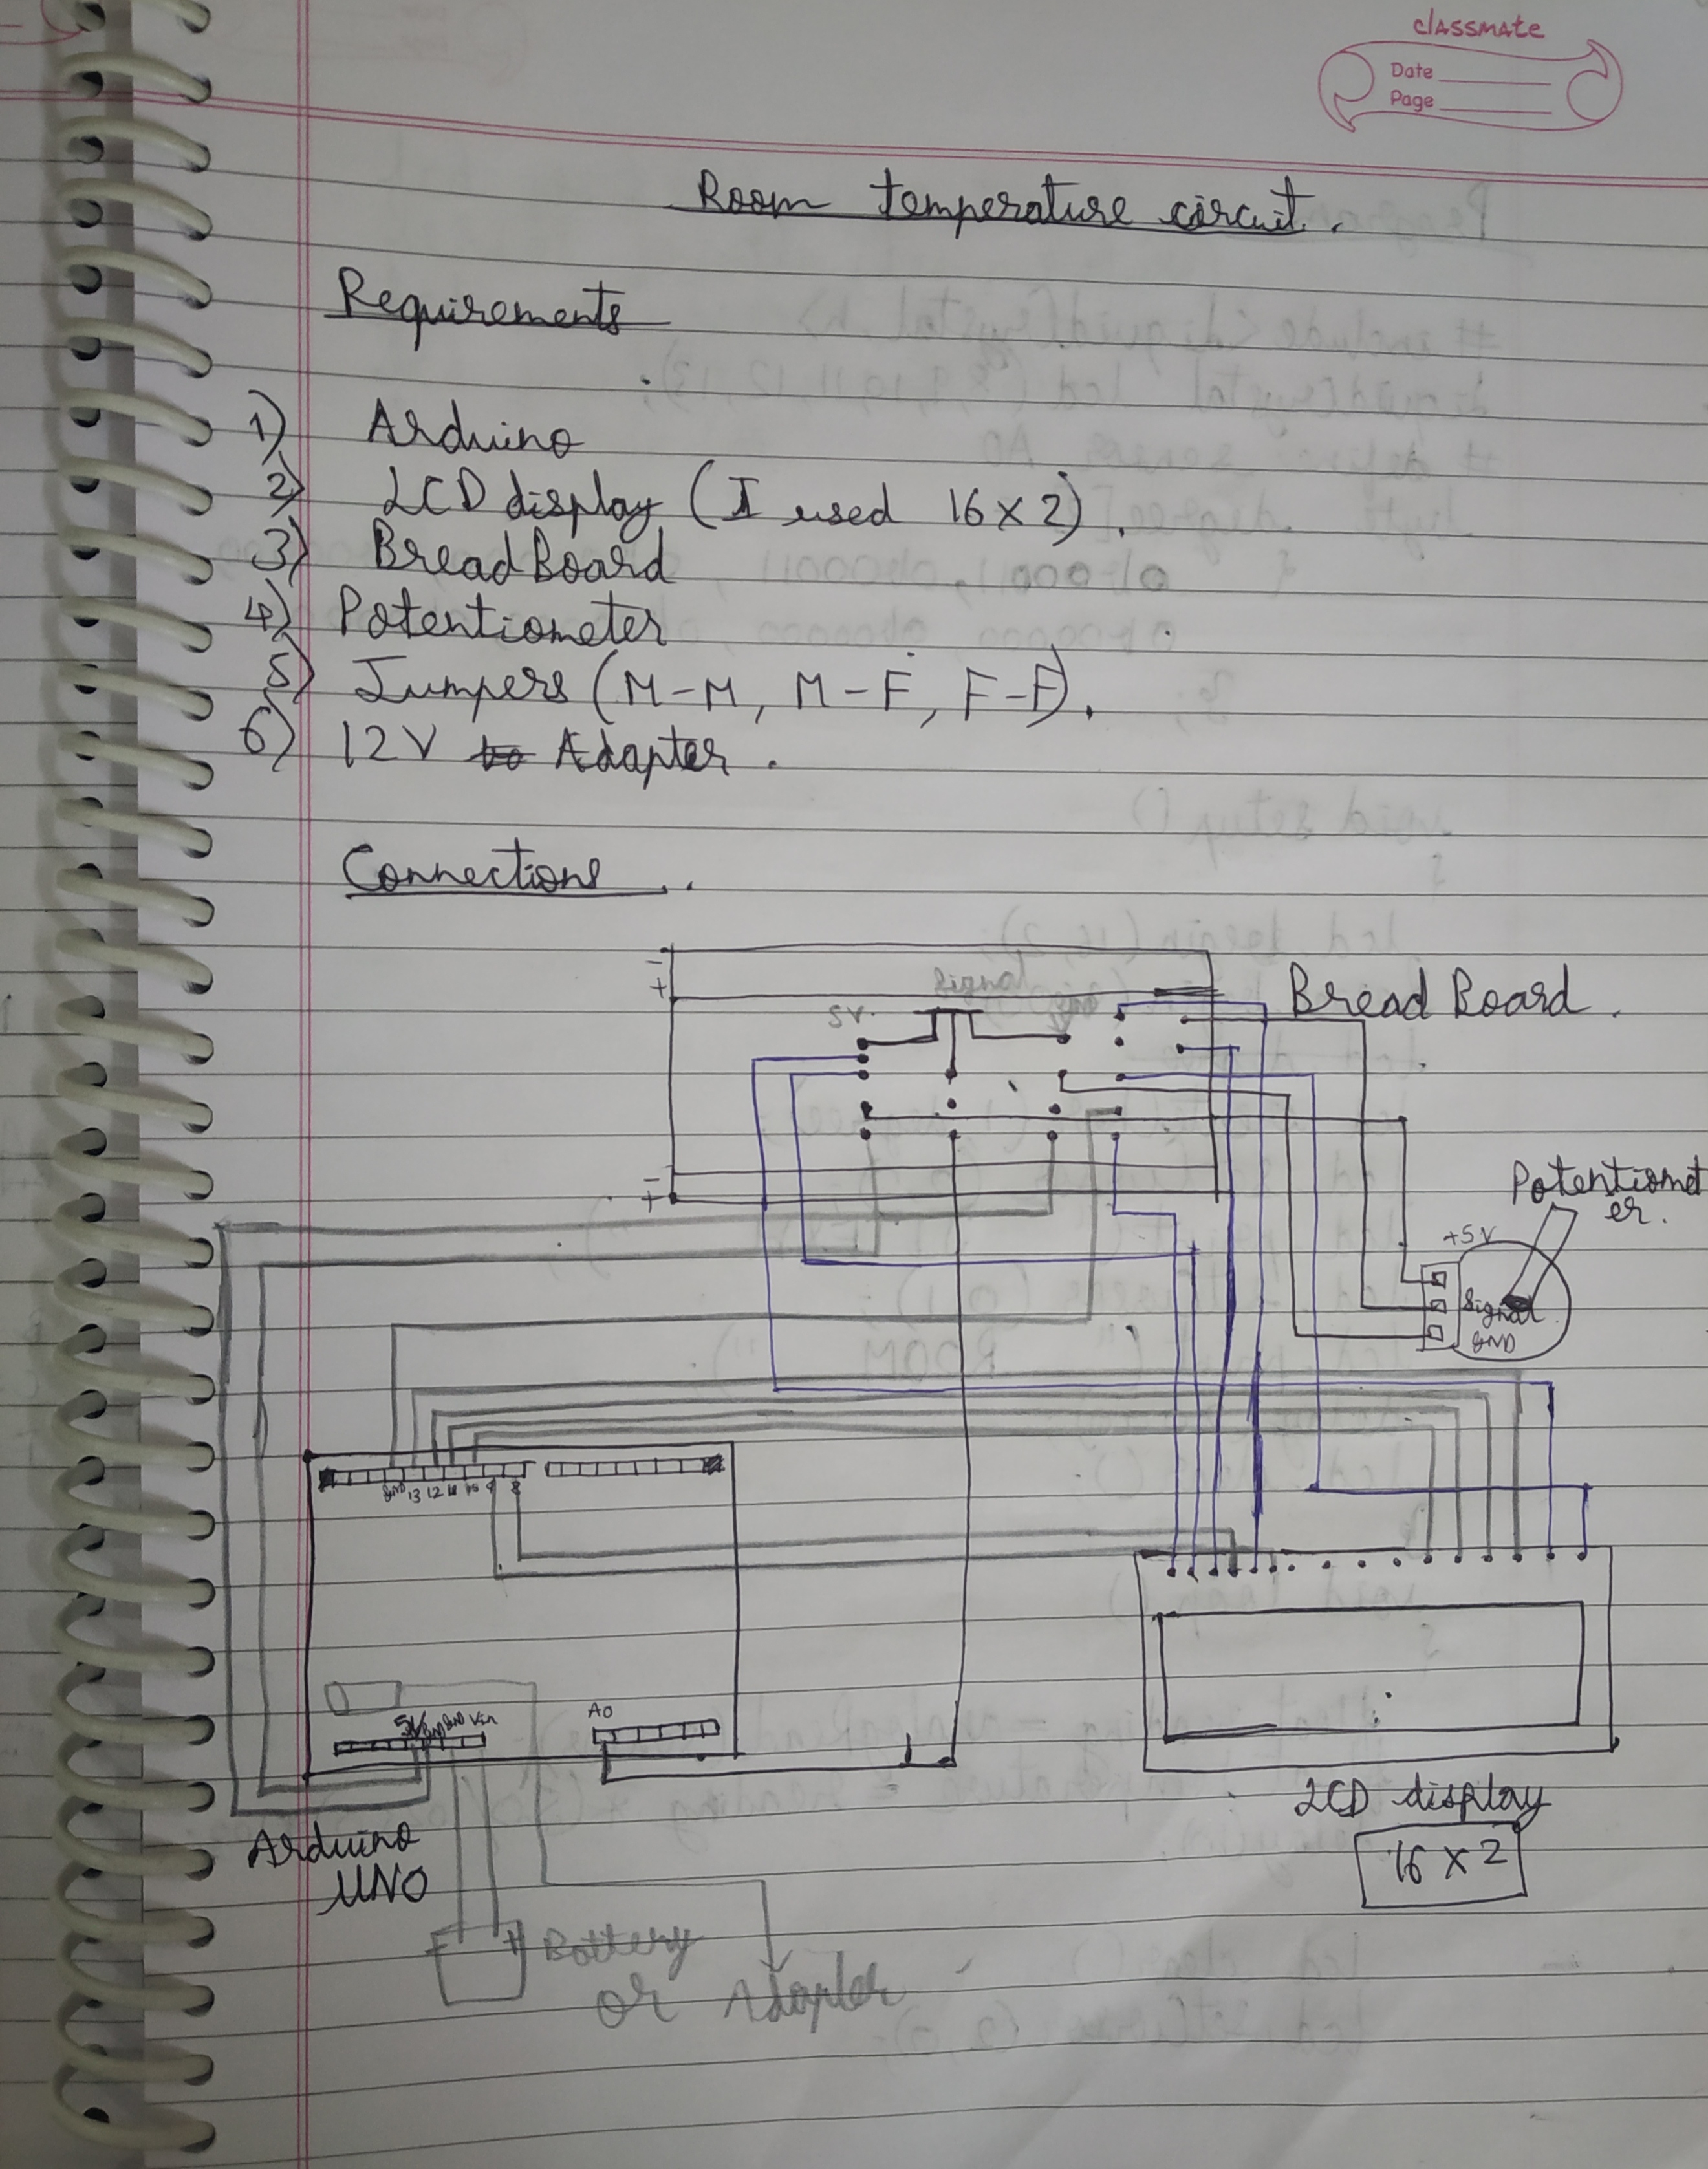 classmate
Date
Page
Room temperature circuit.
Requirements
1) Arduino
2) LCD display (I used 16 x 2).
3) BreadBoard
4) Potentiometer
5) Jumpers (M-M, M-F, F-F).
6) 12V Adapter.
Connections.
-
+
Signal
5V.
Bread Board.
-
+
Potentiomet
er.
+5V
Signal
GND
GND 13 12 11 10 9 8
5V GND GND Vin
A0
Arduino
UNO
LCD display
16 x 2
Battery
or Adapter